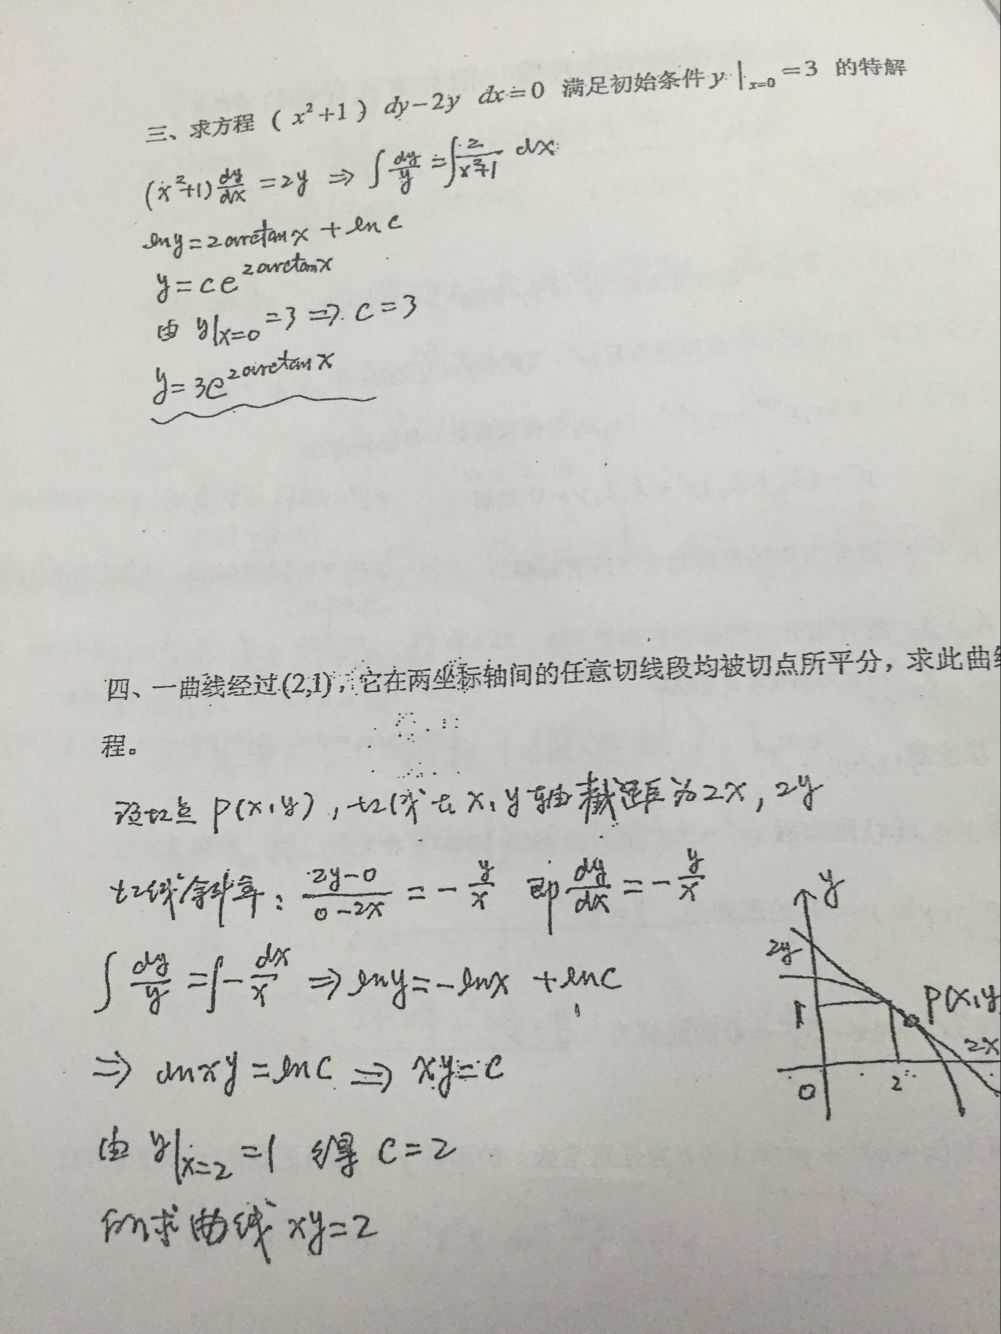 三、求方程（x²+1）dy－2y dx＝0 满足初始条件 y|ₓ₌₀＝3 的特解
(x²+1) dy/dx = 2y ⇒ ∫ dy/y = ∫ 2/(x²+1) dx
lny = 2arctanx + lnc
y = ce^(2arctanx)
由 y|ₓ₌₀ = 3 ⇒ c = 3
y = 3e^(2arctanx)
四、一曲线经过(2,1)，它在两坐标轴间的任意切线段均被切点所平分，求此曲
程。
设切点 P(x,y)，切线在 x, y 轴截距为 2x, 2y
切线斜率：(2y-0)/(0-2x) = -y/x 即 dy/dx = -y/x
∫ dy/y = ∫ -dx/x ⇒ lny = -lnx + lnc
⇒ lnxy = lnc ⇒ xy = c
由 y|ₓ₌₂ = 1 得 c = 2
所求曲线 xy = 2
y
2y
1
P(x,y
2x
0
2